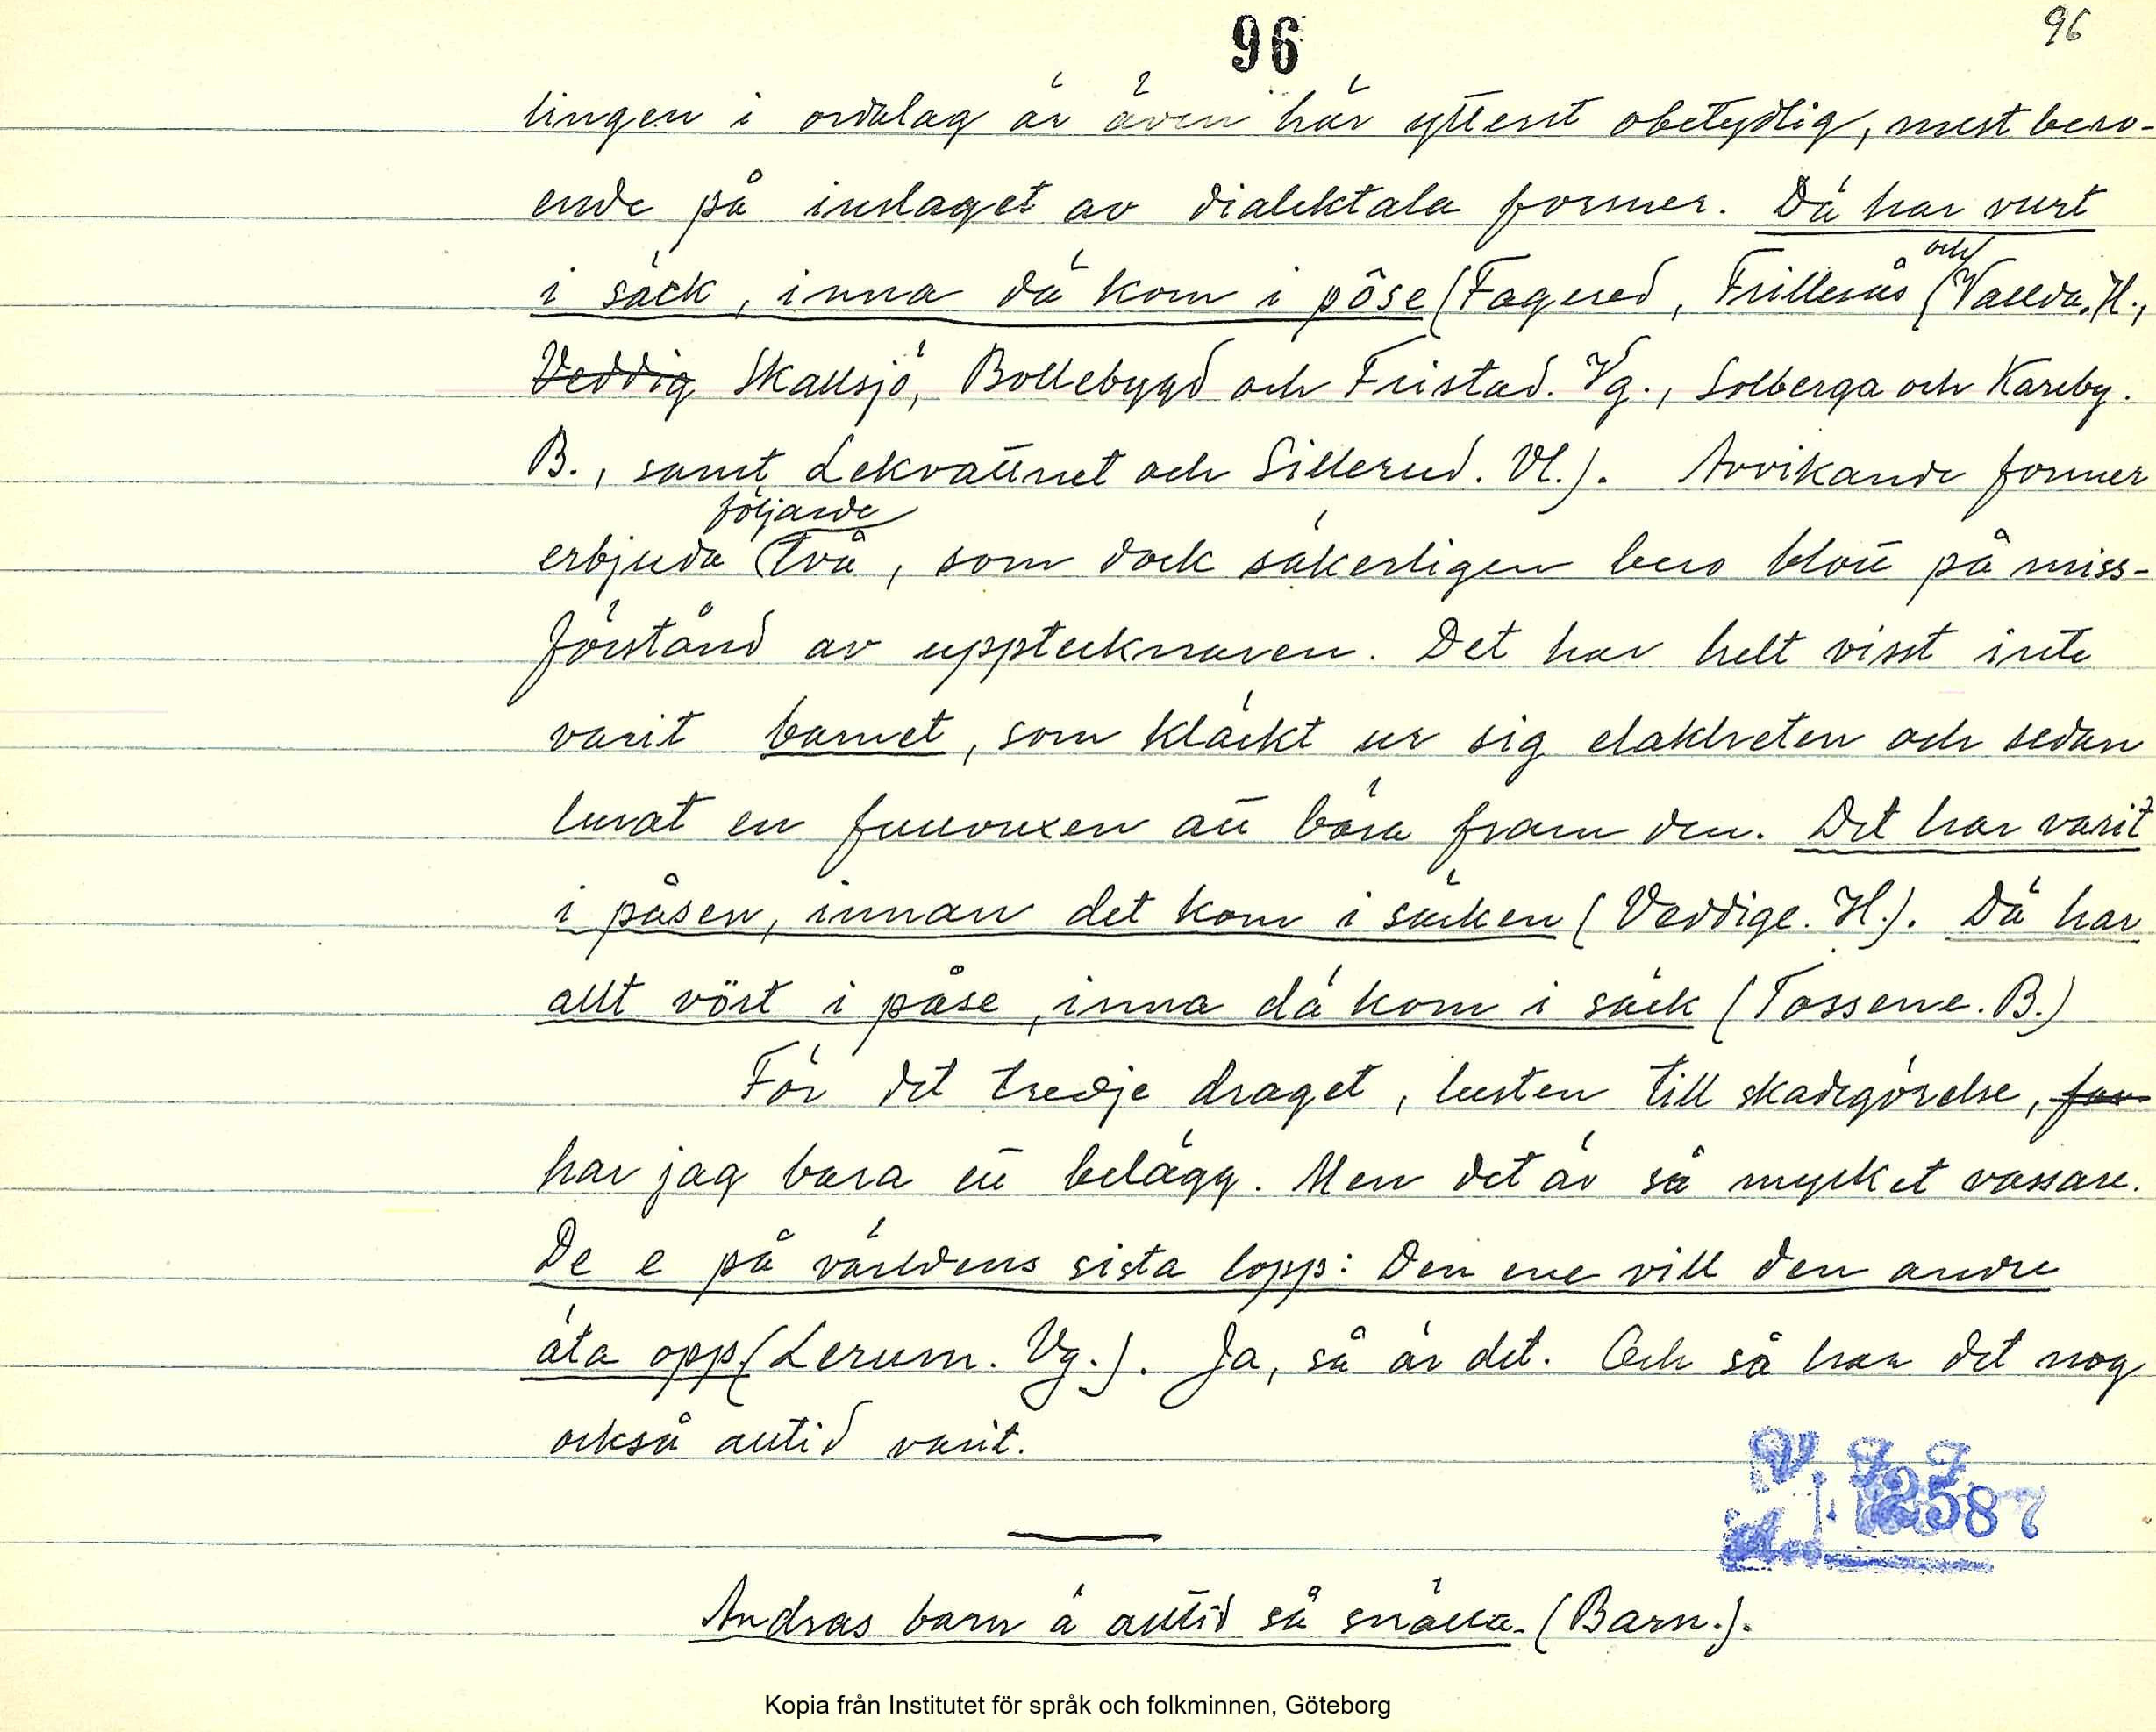 96
96
lingen i ordalag är även här ytterst obetydlig, mest bero-
ende på inslaget av dialektala former. Dä har vurt
och
i säck, inna dä kom i pôse (Fagered, Frillesås Vallda. H.,
Veddig Skallsjö, Bollebygd och Fristad. Vg., Solberga och Kareby.
B., samt Lekvattnet och Sillerud. Vl.). Avvikande former
följande
erbjuda två, som dock säkerligen bero blott på miss-
förstånd av upptecknaren. Det har helt visst inte
varit barnet, som kläckt ur sig elakheten och sedan
lurat en fullvuxen att bära fram den. Det har varit
i påsen, innan det kom i säcken (Veddige. H.). Dä har
allt vört i påse, inna dä kom i säck (Tossene. B.)
För det tredje draget, lusten till skadegörelse, for
har jag bara ett belägg. Men det är så mycket vassare.
De e på världens sista lopp: Den ene vill den andre
äta opp (Lerum. Vg.). Ja, så är det. Och så har det nog
också alltid varit.
V. F. F.
12587
Andras barn ä alltid så snälla. (Barn.).
Kopia från Institutet för språk och folkminnen, Göteborg